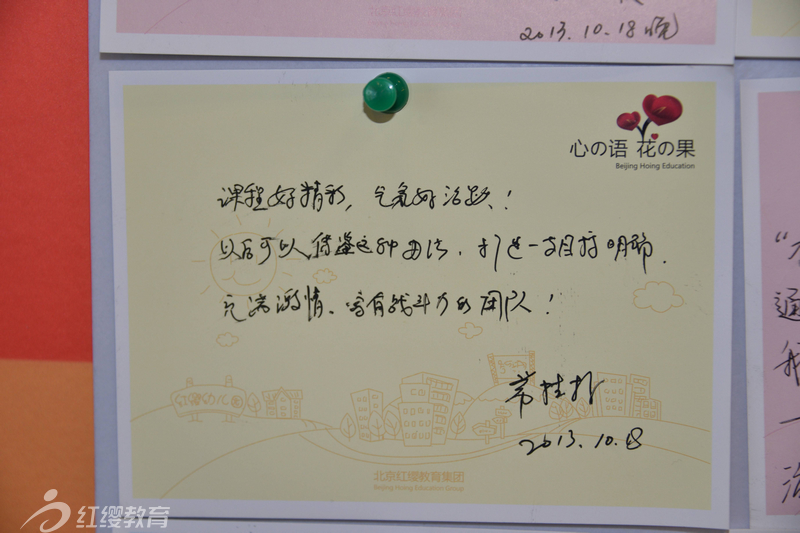 2013.10.18晚
心の语 花の果
Beijing Hoing Education
课程好精彩，气氛好活跃！
以后可以借鉴这种办法，打造一支目标明确、
充满激情、富有战斗力的团队！
2013.10.18
红缨幼儿园
北京红缨教育集团
Beijing Hoing Education Group
通
我
一
红缨教育